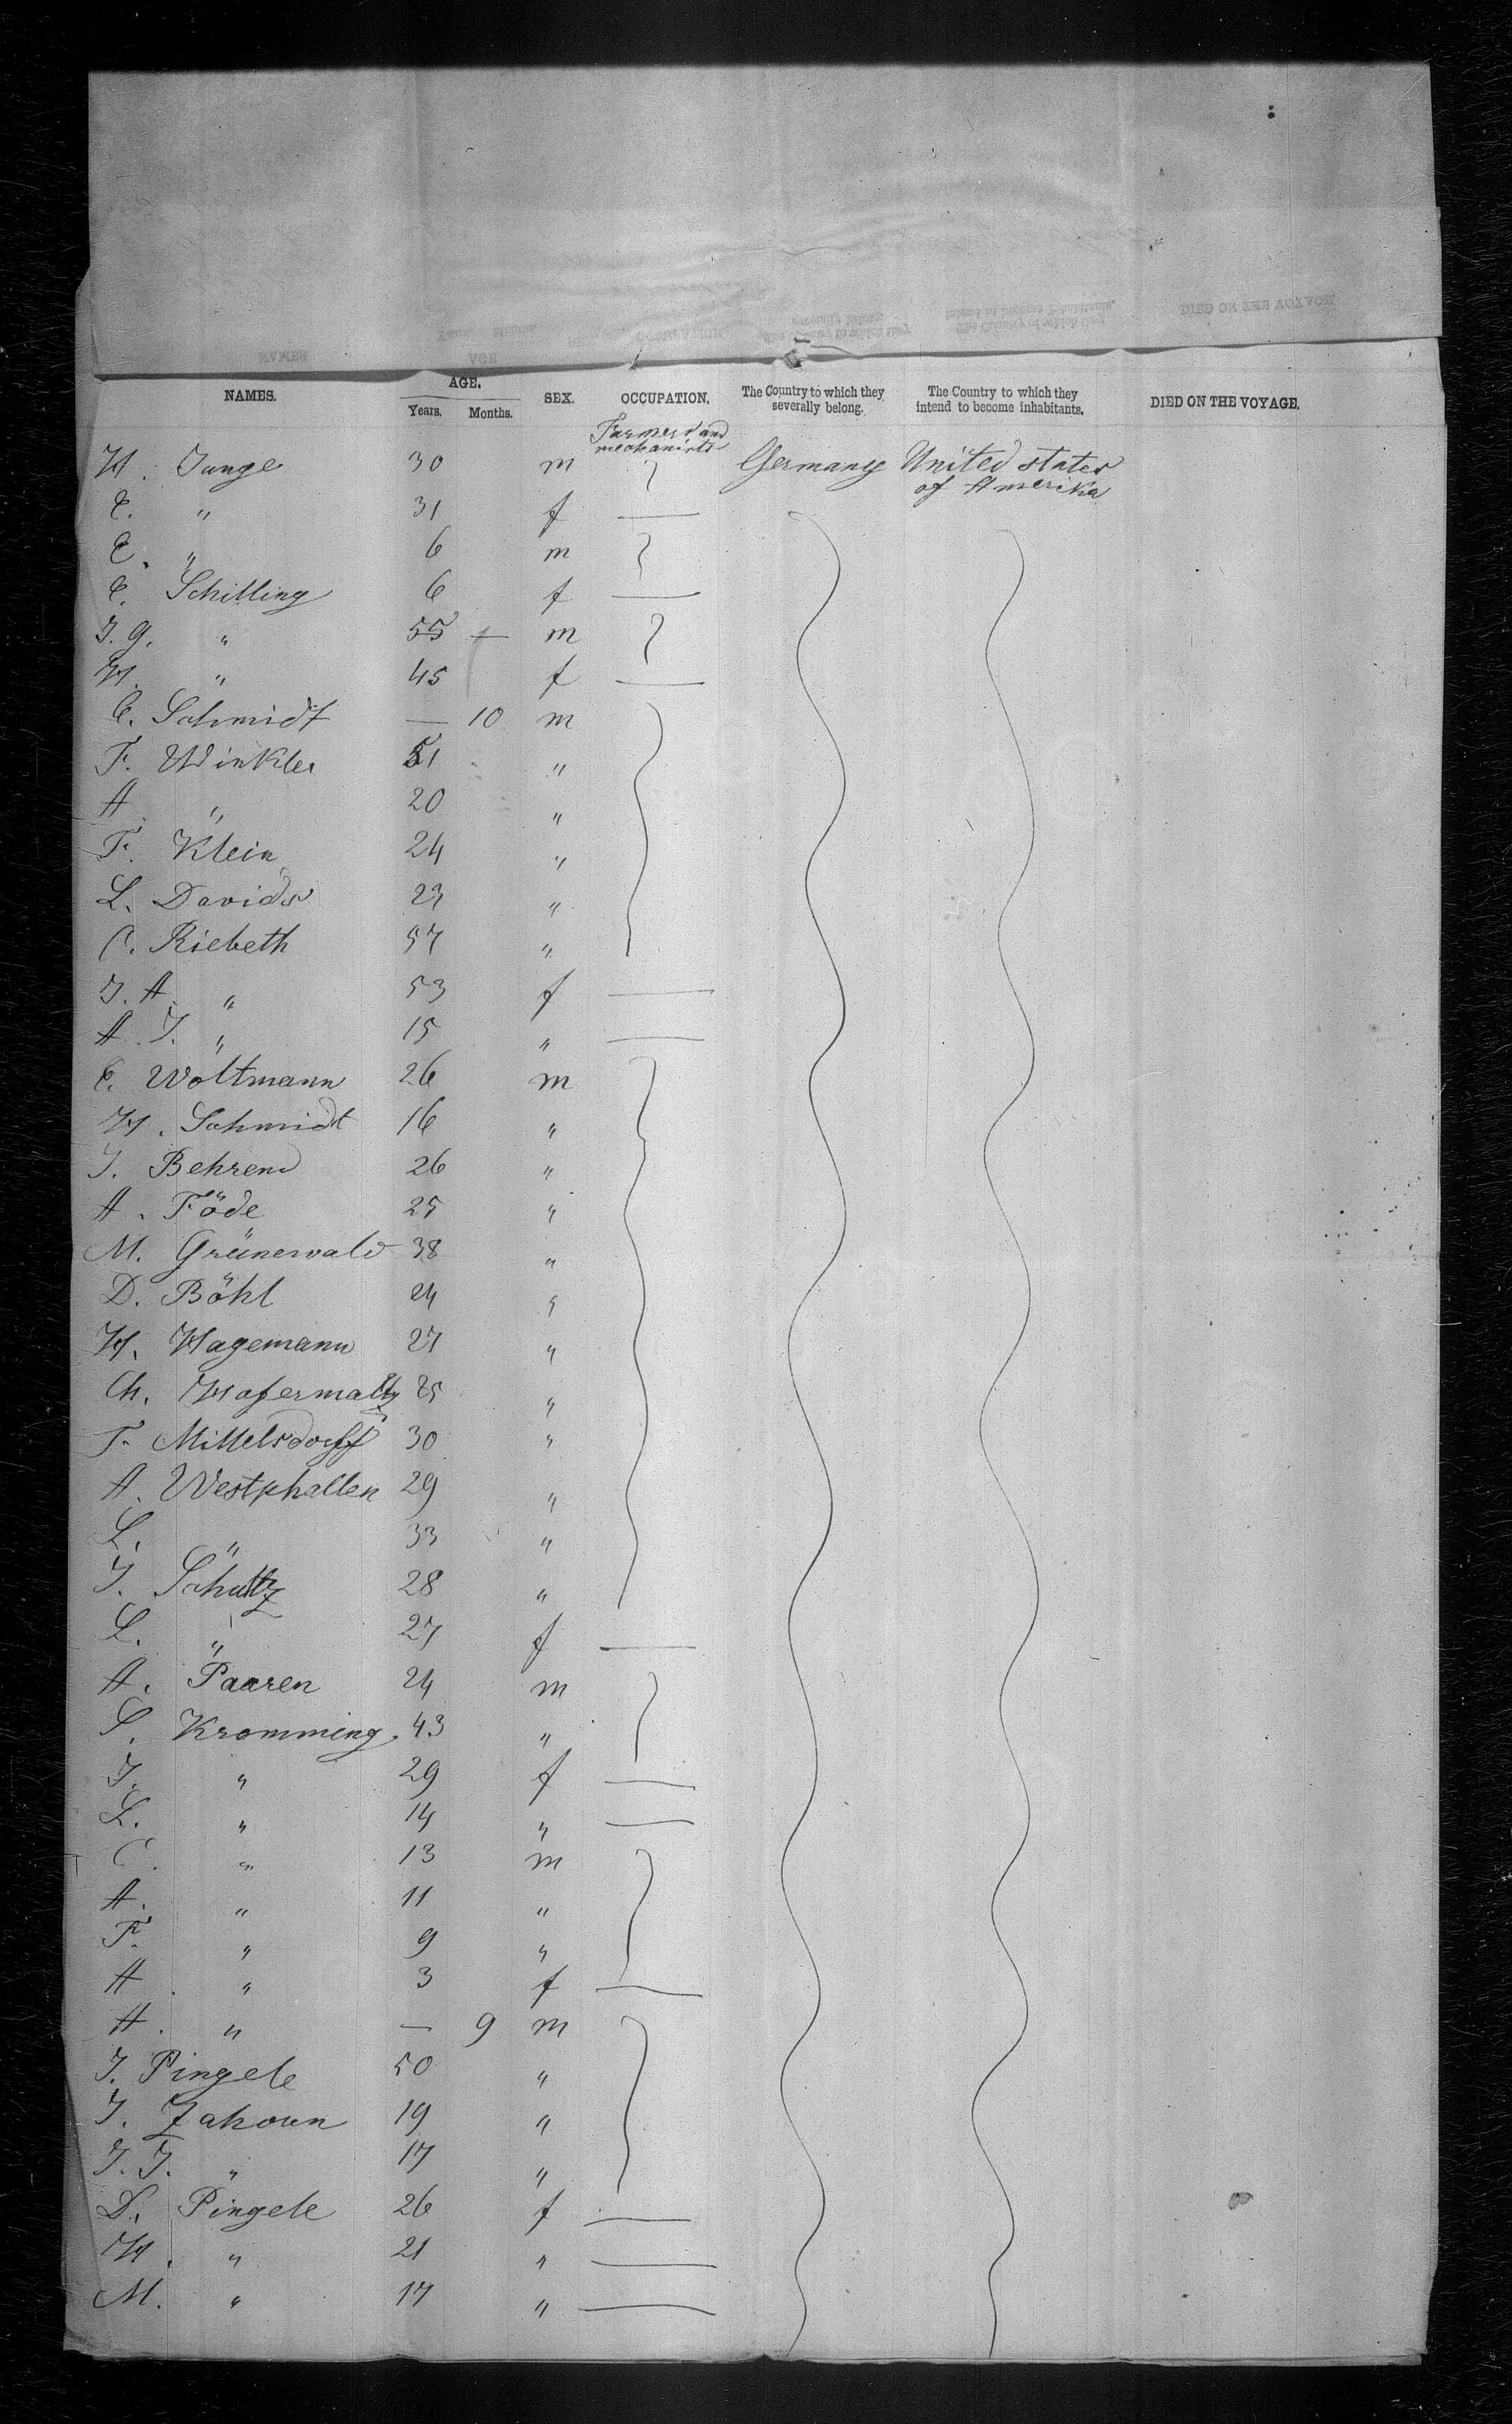 NAMES. AGE. SEX. OCCUPATION. The Country to which they severally belong. The Country to which they intend to become inhabitants. DIED ON THE VOYAGE.
Years. Months.
Farmers and mechanists
H. Junge 30 m Germany United states of Amerika
E. " 31 f —
E. " 6 m
E. Schilling 6 f —
J. G. " 55 — m
H. " 45 f —
C. Schmidt — 10 m
F. Winkler 51 "
A. " 20 "
F. Klein 24 "
L. Davids 23 "
C. Riebeth 57 "
J. A. " 53 f —
A. J. " 15 " —
E. Woltmann 26 m
H. Schmidt 16 "
J. Behrend 26 "
A. Föde 25 "
M. Grünerwald 38 "
D. Böhl 24 "
H. Hagemann 27 "
Ch. Hafermaltz 25 "
F. Mittelsdorff 30 "
A. Westphallen 29 "
L. " 33 "
J. Schultz 28 "
L. " 27 f —
A. Paaren 24 m
S. Kromming 43 "
J. " 29 f —
L. " 14 " —
C. " 13 m
A. " 11 "
F. " 9 "
A. " 3 f —
A. " — 9 m
J. Pingele 50 "
J. Zahoun 19 "
J. J. " 17 "
D. Pingele 26 f —
H. " 21 " —
M. " 17 " —